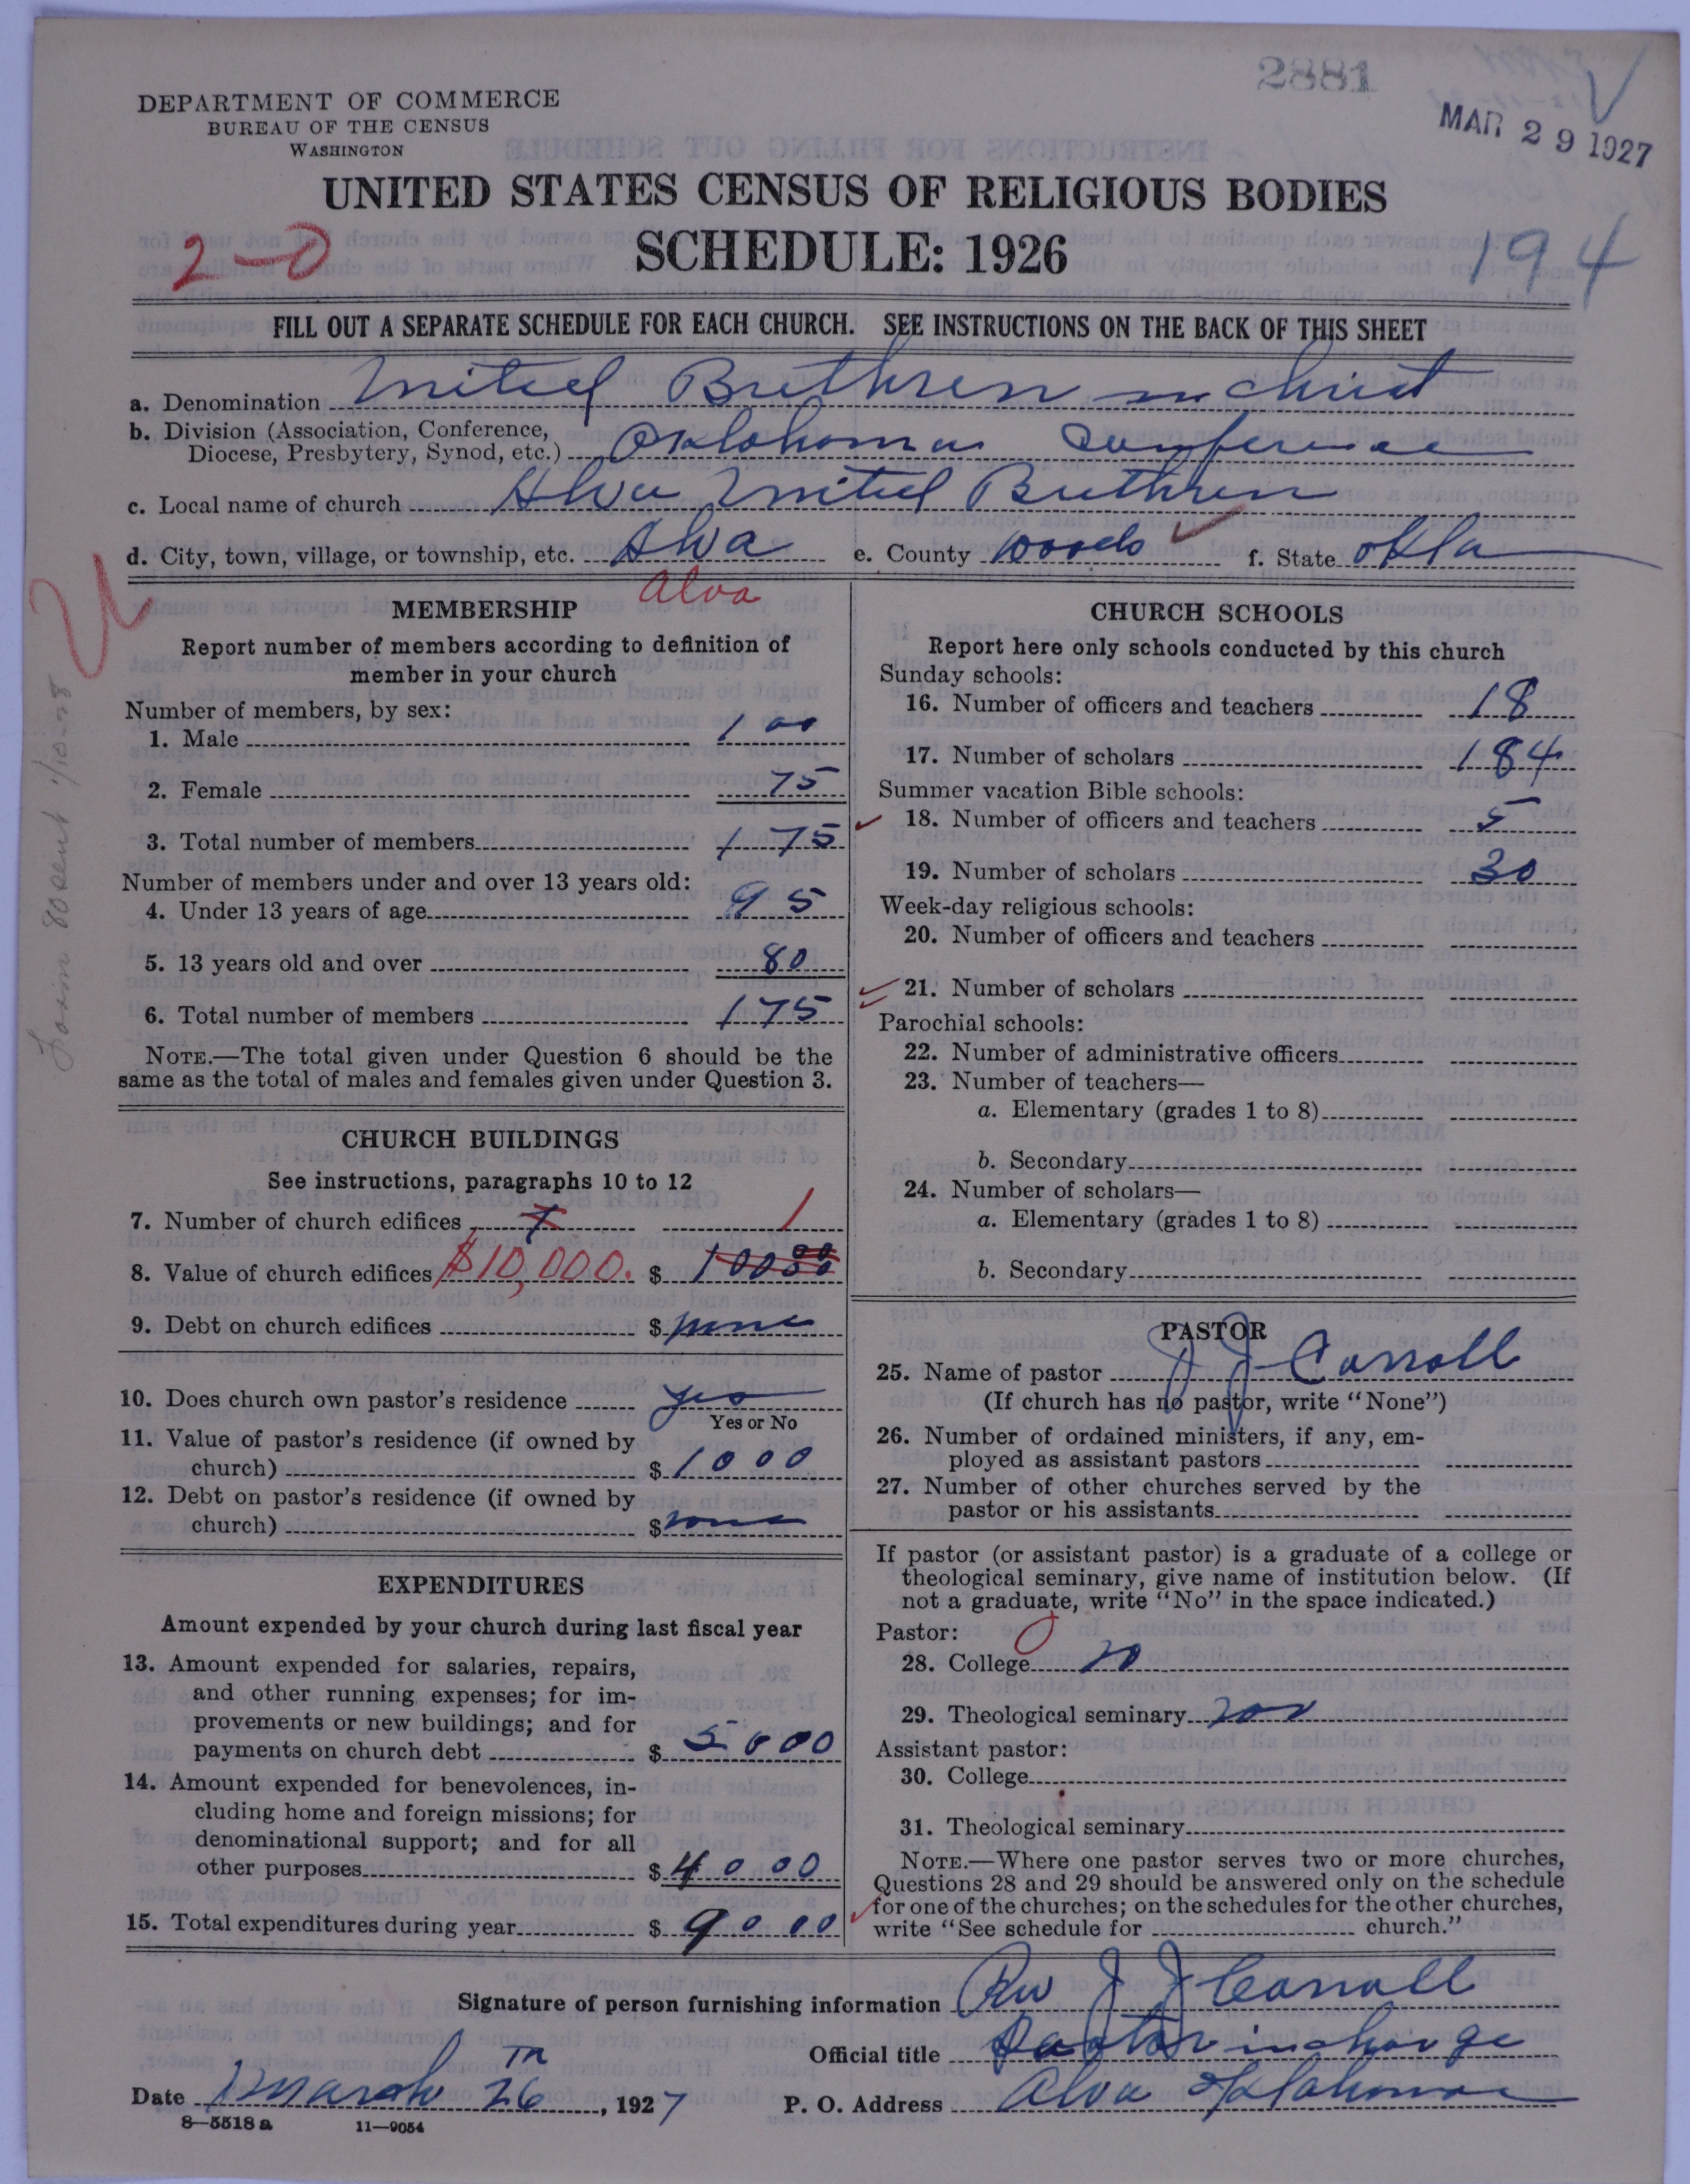 2881
MAR 29 1927
DEPARTMENT OF COMMERCE
BUREAU OF THE CENSUS
WASHINGTON
UNITED STATES CENSUS OF RELIGIOUS BODIES
2-0
SCHEDULE: 1926
194
FILL OUT A SEPARATE SCHEDULE FOR EACH CHURCH. SEE INSTRUCTIONS ON THE BACK OF THIS SHEET
a. Denomination United Brethren in Christ
b. Division (Association, Conference,
Diocese, Presbytery, Synod, etc.) Oklahoma Conference
c. Local name of church Alva United Brethren
d. City, town, village, or township, etc. Alva e. County Woods f. State Okla
Alva
MEMBERSHIP
Report number of members according to definition of
member in your church
Number of members, by sex:
1. Male 100
2. Female 75
3. Total number of members 175
Number of members under and over 13 years old:
4. Under 13 years of age 95
5. 13 years old and over 80
6. Total number of members 175
NOTE.—The total given under Question 6 should be the
same as the total of males and females given under Question 3.
CHURCH BUILDINGS
See instructions, paragraphs 10 to 12
7. Number of church edifices 1 1
8. Value of church edifices $10,000. $
9. Debt on church edifices $ none
10. Does church own pastor's residence yes
Yes or No
11. Value of pastor's residence (if owned by
church) $ 1000
12. Debt on pastor's residence (if owned by
church) $ none
EXPENDITURES
Amount expended by your church during last fiscal year
13. Amount expended for salaries, repairs,
and other running expenses; for im-
provements or new buildings; and for
payments on church debt $ 5000
14. Amount expended for benevolences, in-
cluding home and foreign missions; for
denominational support; and for all
other purposes $ 4000
15. Total expenditures during year $ 9000
CHURCH SCHOOLS
Report here only schools conducted by this church
Sunday schools:
16. Number of officers and teachers 18
17. Number of scholars 184
Summer vacation Bible schools:
18. Number of officers and teachers 5
19. Number of scholars 30
Week-day religious schools:
20. Number of officers and teachers
21. Number of scholars
Parochial schools:
22. Number of administrative officers
23. Number of teachers—
a. Elementary (grades 1 to 8)
b. Secondary
24. Number of scholars—
a. Elementary (grades 1 to 8)
b. Secondary
PASTOR
25. Name of pastor J J Carroll
(If church has no pastor, write "None")
26. Number of ordained ministers, if any, em-
ployed as assistant pastors
27. Number of other churches served by the
pastor or his assistants
If pastor (or assistant pastor) is a graduate of a college or
theological seminary, give name of institution below. (If
not a graduate, write "No" in the space indicated.)
Pastor:
28. College no
29. Theological seminary
Assistant pastor:
30. College
31. Theological seminary
NOTE.—Where one pastor serves two or more churches,
Questions 28 and 29 should be answered only on the schedule
for one of the churches; on the schedules for the other churches,
write "See schedule for church."
Signature of person furnishing information Rev J J Carroll
Official title Pastor in charge
Date March 26 th, 1927 P. O. Address Alva Oklahoma
8—5518 a 11—9054